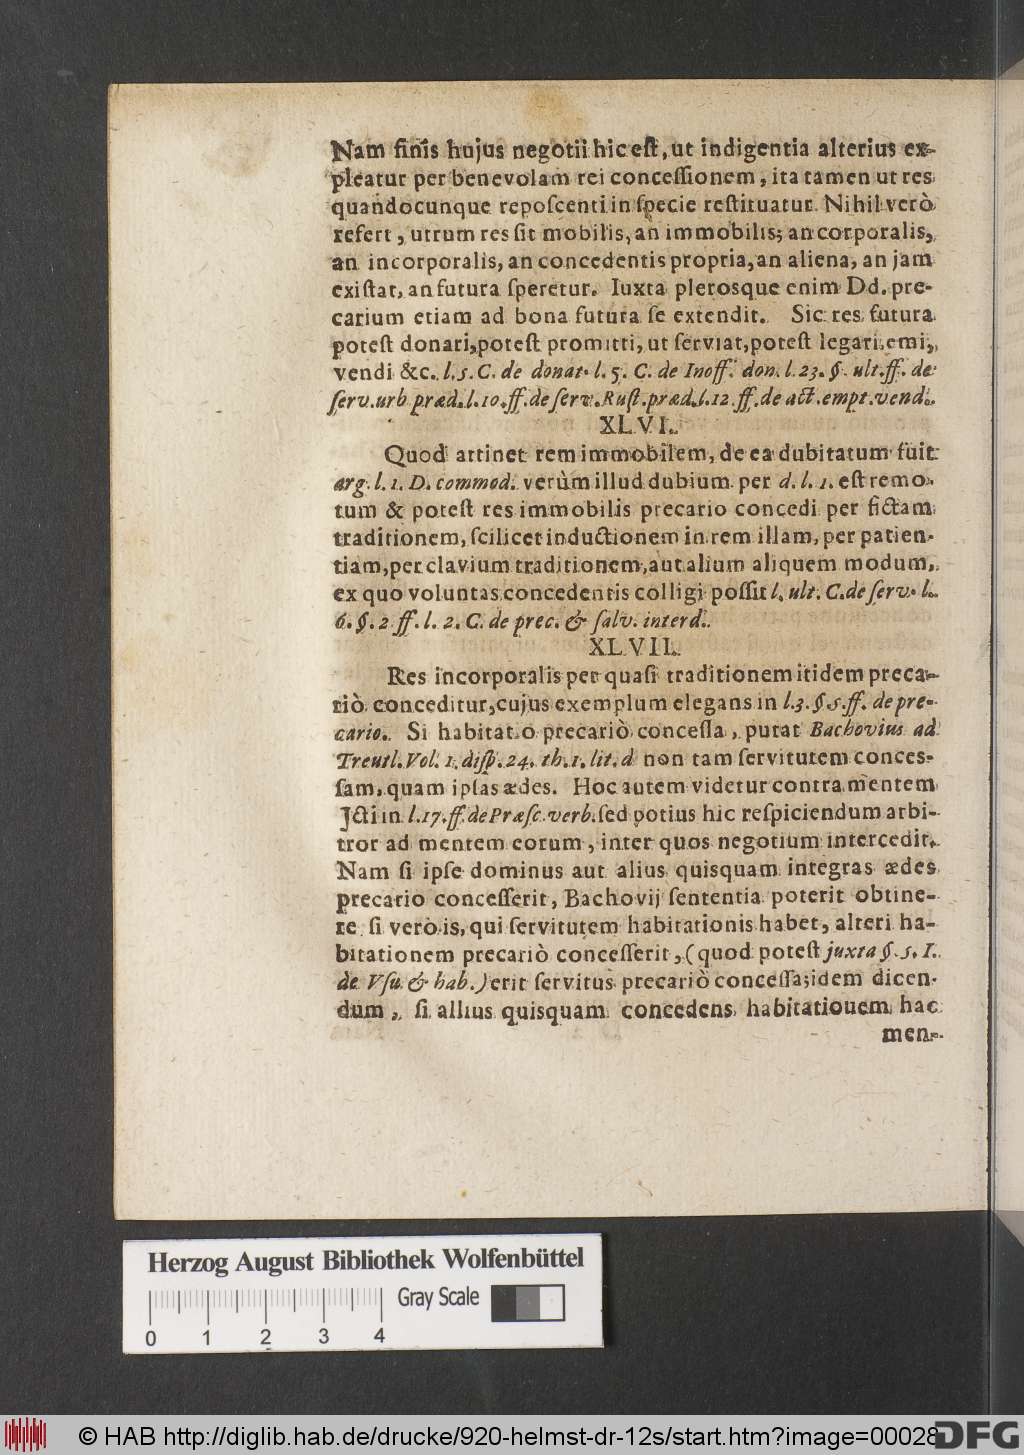 Nam finis hujus negotii hic eſt, ut indigentia alterius ex-
pleatur per benevolam rei conceſſionem, ita tamen ut res
quandocunque repoſcenti in ſpecie reſtituatur. Nihil verò
refert, utrum res ſit mobilis, an immobilis; an corporalis,
an incorporalis, an concedentis propria, an aliena, an jam
exiſtat, an futura ſperetur. Iuxta plerosque enim Dd. pre-
carium etiam ad bona futura ſe extendit. Sic res futura
poteſt donari, poteſt promitti, ut ſerviat, poteſt legari, emi,
vendi &c. l. 5. C. de donat. l. 5. C. de Inoff. don. l. 23. §. ult. ff. de
ſerv. urb præd. l. 10. ff. de ſerv. Ruſt. præd. l. 12 ff. de act. empt. vend.
XLVI.
Quod attinet rem immobilem, de ea dubitatum fuit
arg. l. 1. D. commod. verùm illud dubium per d. l. 1. eſt remo-
tum & poteſt res immobilis precario concedi per fictam
traditionem, ſcilicet inductionem in rem illam, per patien-
tiam, per clavium traditionem, aut alium aliquem modum,
ex quo voluntas concedentis colligi poſſit l. ult. C. de ſerv. l.
6. §. 2 ff. l. 2. C. de prec. & ſalv. interd.
XLVII.
Res incorporalis per quaſi traditionem itidem preca-
riò conceditur, cujus exemplum elegans in l. 3. § 5. ff. de pre-
cario. Si habitatio precariò conceſſa, putat Bachovius ad
Treutl. Vol. 1. diſp. 24. th. 1. lit. d non tam ſervitutem conces-
ſam, quam ipſas ædes. Hoc autem videtur contra mentem
Jcti in l. 17. ff. de Præſc. verb. ſed potius hic reſpiciendum arbi-
tror ad mentem eorum, inter quos negotium intercedit.
Nam ſi ipſe dominus aut alius quisquam integras ædes
precario conceſſerit, Bachovij ſententia poterit obtine-
re ſi verò is, qui ſervitutem habitationis habet, alteri ha-
bitationem precariò conceſſerit, (quod poteſt juxta §. 5. I.
de Vſu & hab.) erit ſervitus precariò conceſſa; idem dicen-
dum, ſi allius quisquam concedens habitatiouem hac
men-
Herzog August Bibliothek Wolfenbüttel
Gray Scale
0 1 2 3 4
© HAB http://diglib.hab.de/drucke/920-helmst-dr-12s/start.htm?image=00028
DFG